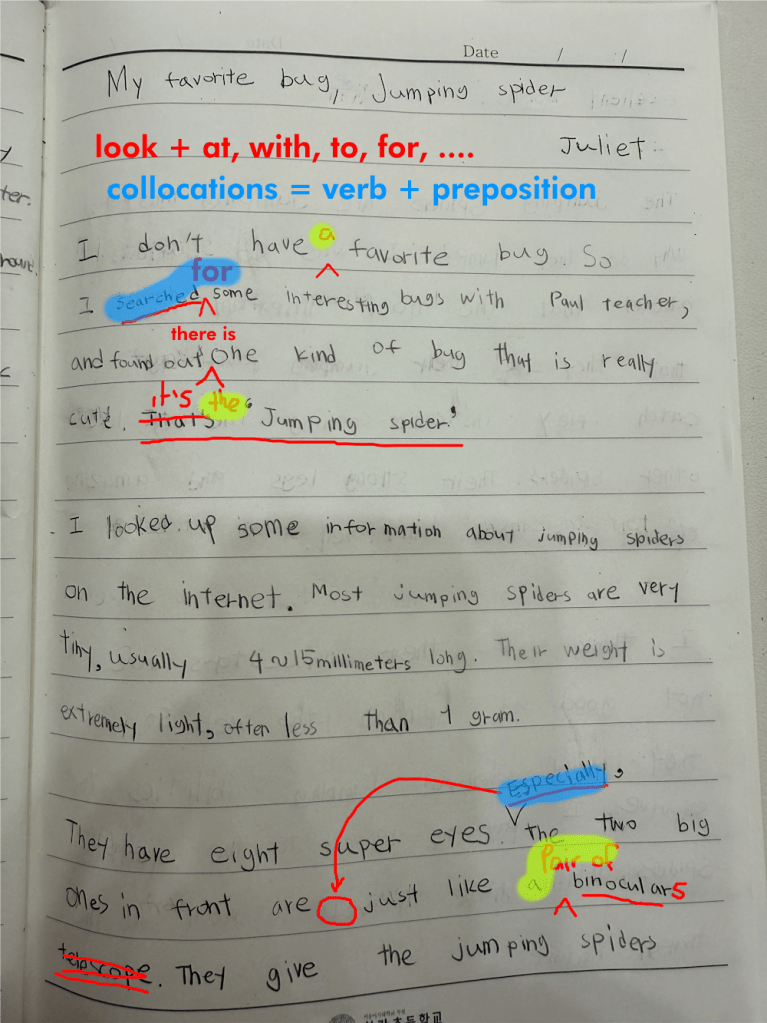 Date / /
My favorite bug, Jumping spider
look + at, with, to, for, ....
Juliet
collocations = verb + preposition
I don't have a favorite bug So
for
I searched some interesting bugs with Paul teacher,
there is
and found out one kind of bug that is really
it's the
cute. That's 'Jumping spider'
I looked up some information about jumping spiders
on the internet. Most jumping spiders are very
tiny, usually 4~15millimeters long. Their weight is
extremely light, often less than 1 gram.
Especially,
They have eight super eyes. the two big
Pair of
ones in front are just like a binoculars
They give the jumping spiders